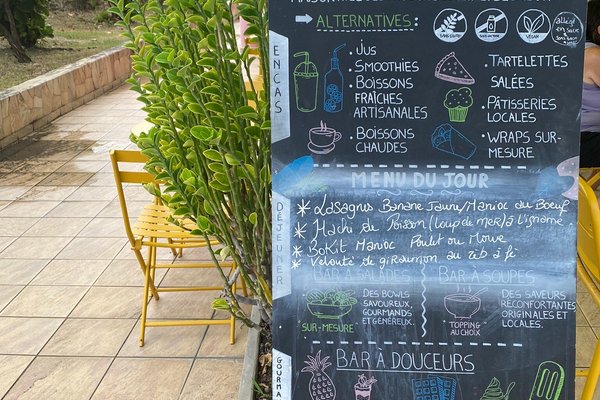 ALTERNATIVES:
SANS GLUTEN
VEGAN
allégé
en sucre
ou
sans sucre
ENCAS
• JUS
SMOOTHIES
• BOISSONS
FRAÎCHES
ARTISANALES
• BOISSONS
CHAUDES
• TARTELETTES
SALÉES
• PÂTISSERIES
LOCALES
• WRAPS SUR-
MESURE
DÉJEUNER
MENU DU JOUR
* Lasagnes Banane Jaune/Manioc au Boeuf
* Hachi de Poisson (loup de mer) à l'igname
* Bokit Manioc Poulet ou Morue
* Velouté de giraumon au zeb a fè
BAR À SALADES
SUR-MESURE
DES BOWLS
SAVOUREUX,
GOURMANDS
ET GÉNÉREUX.
BAR À SOUPES
TOPPING
AU CHOIX
DES SAVEURS
RÉCONFORTANTES
ORIGINALES ET
LOCALES.
GOURMA
BAR À DOUCEURS